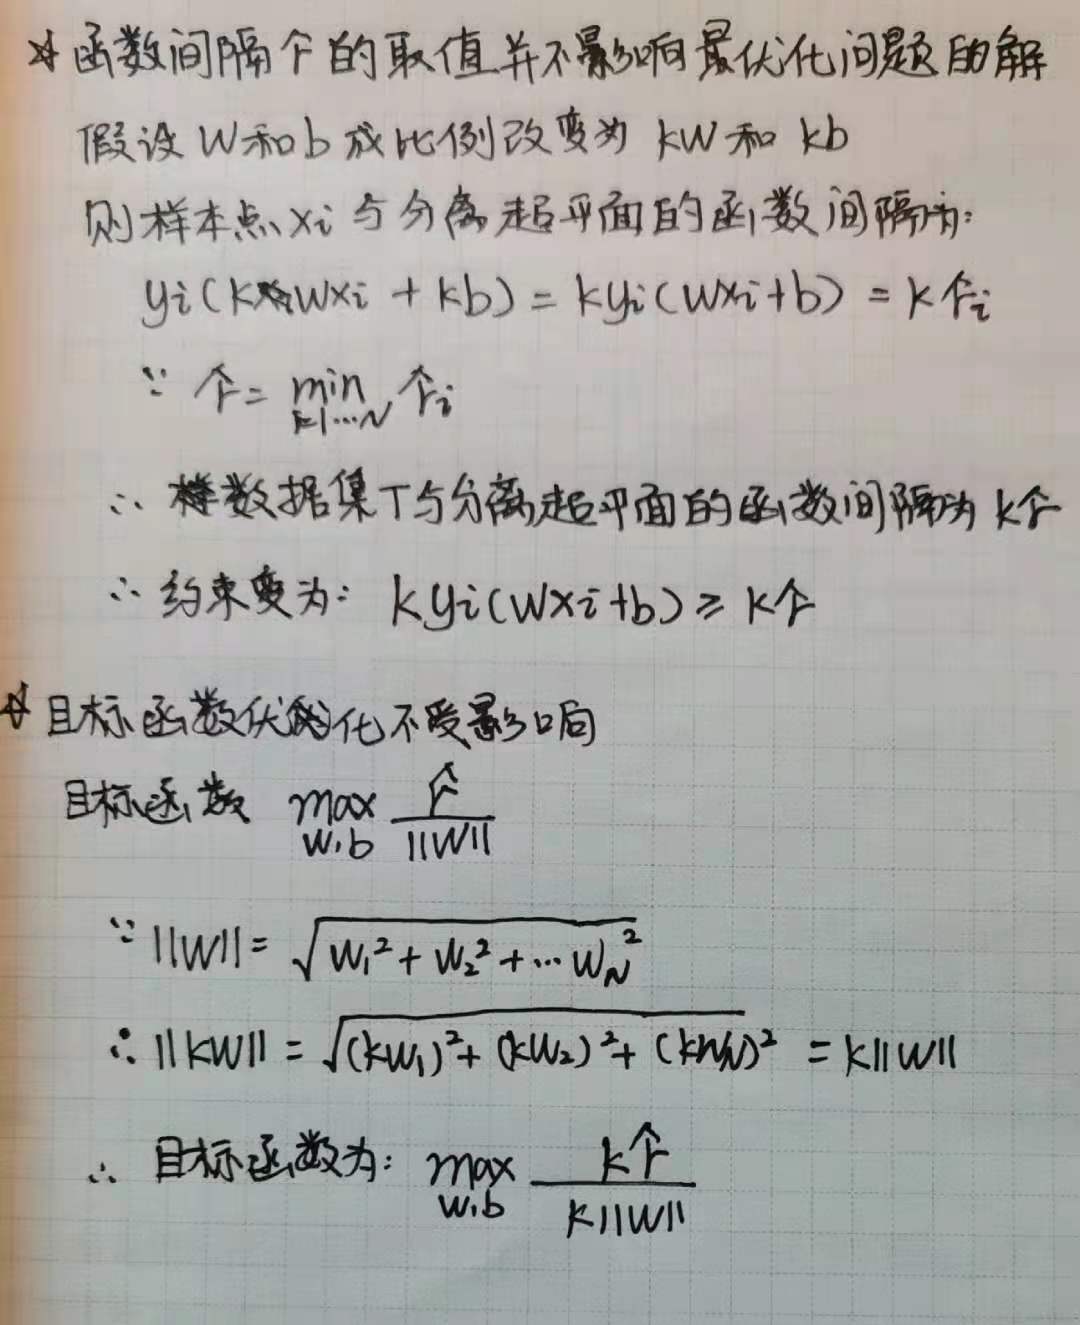 ☆ 函数间隔 γ̂ 的取值并不影响最优化问题的解
假设 W和b 成比例改变为 kW 和 kb
则样本点 xi 与分离超平面的函数间隔为:
yi(kWxi + kb) = kyi(Wxi+b) = kγ̂i
∵ γ̂ = min γ̂i
i=1…N
∴ 数据集T与分离超平面的函数间隔为 kγ̂
∴ 约束变为: kyi(Wxi+b) ≥ kγ̂
☆ 目标函数优化不受影响
目标函数 max γ̂/||W||
W,b
∵ ||W|| = √(W₁² + W₂² + … W_N²)
∴ ||kW|| = √((kW₁)² + (kW₂)² + (kW_N)²) = k||W||
∴ 目标函数为: max kγ̂/k||W||
W,b